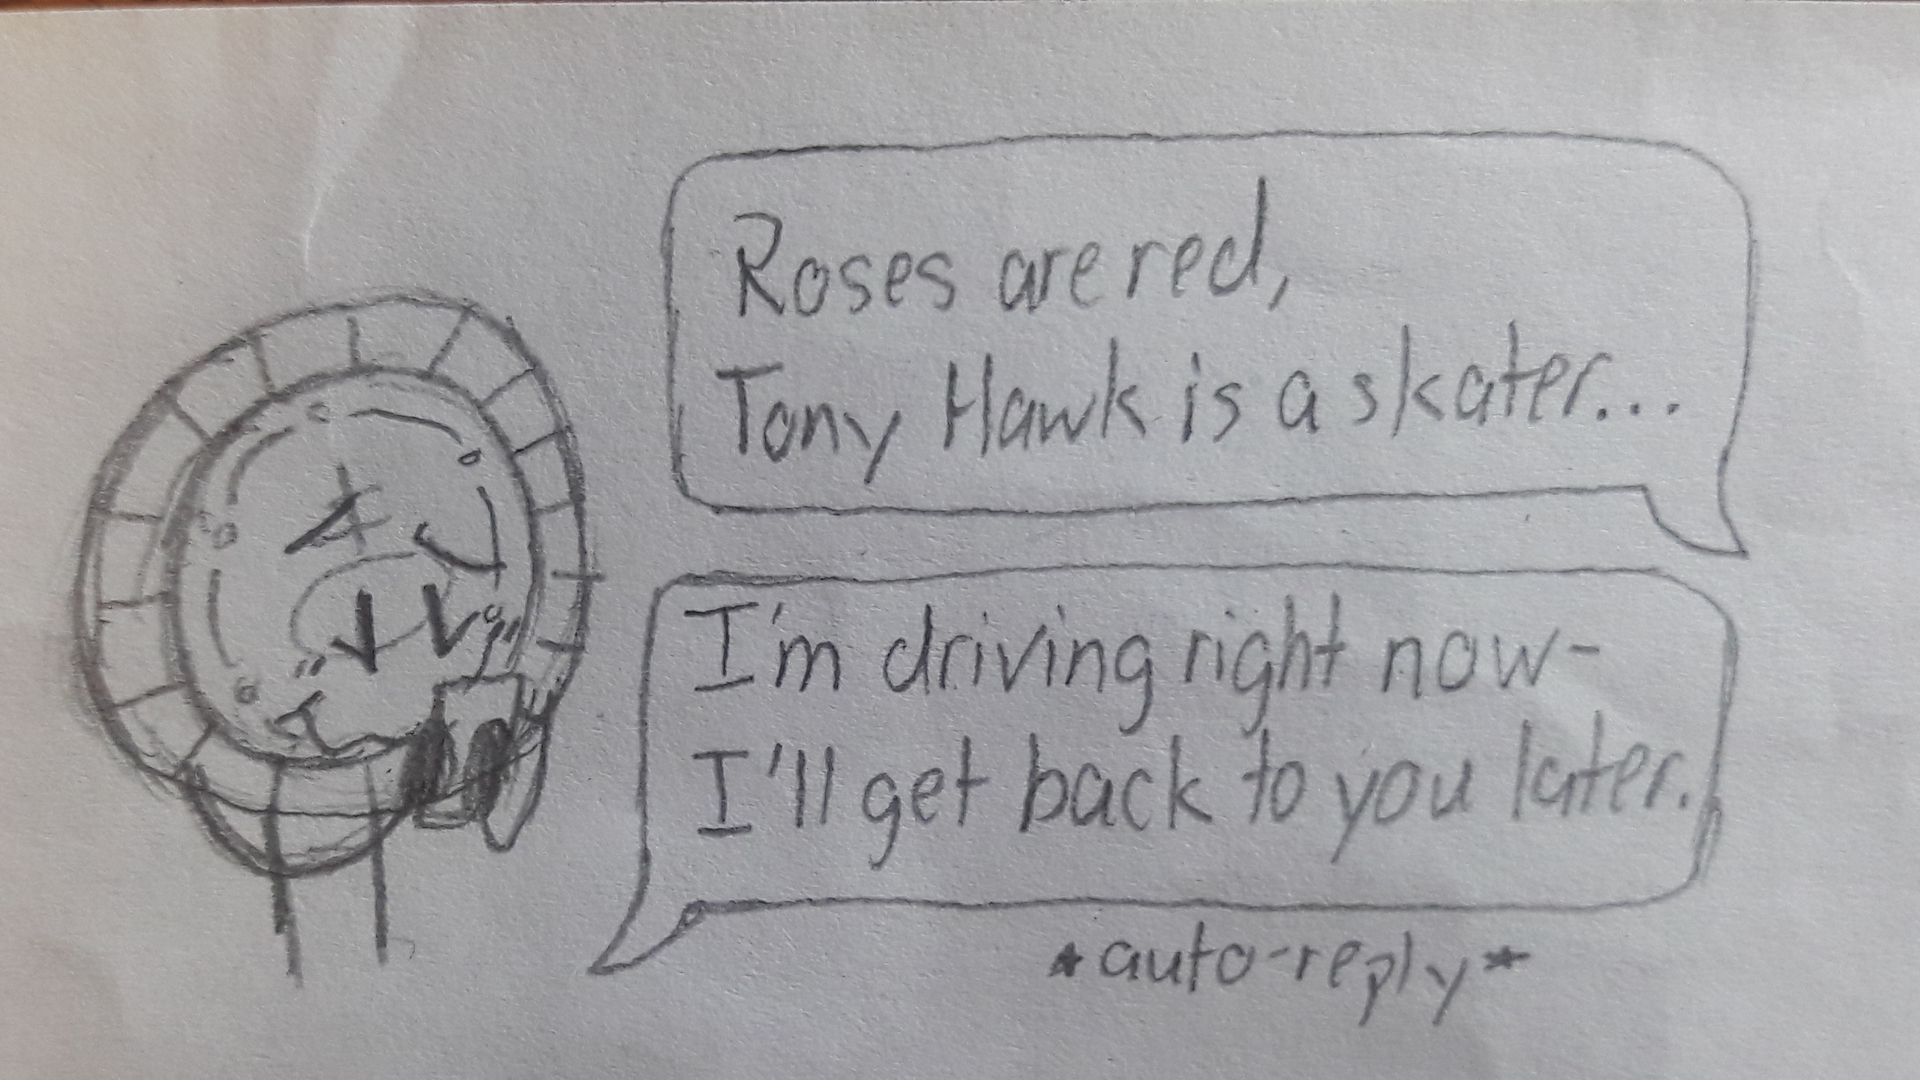 Roses are red,
Tony Hawk is a skater...
I'm driving right now-
I'll get back to you later.
*auto-reply*